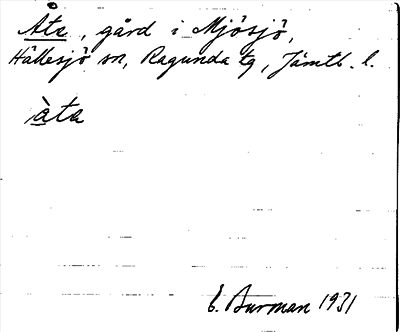 Åta, gård i Mjösjö,
Hällesjö sn, Ragunda tg, Jämtl. l.
àta
E. Burman 1931